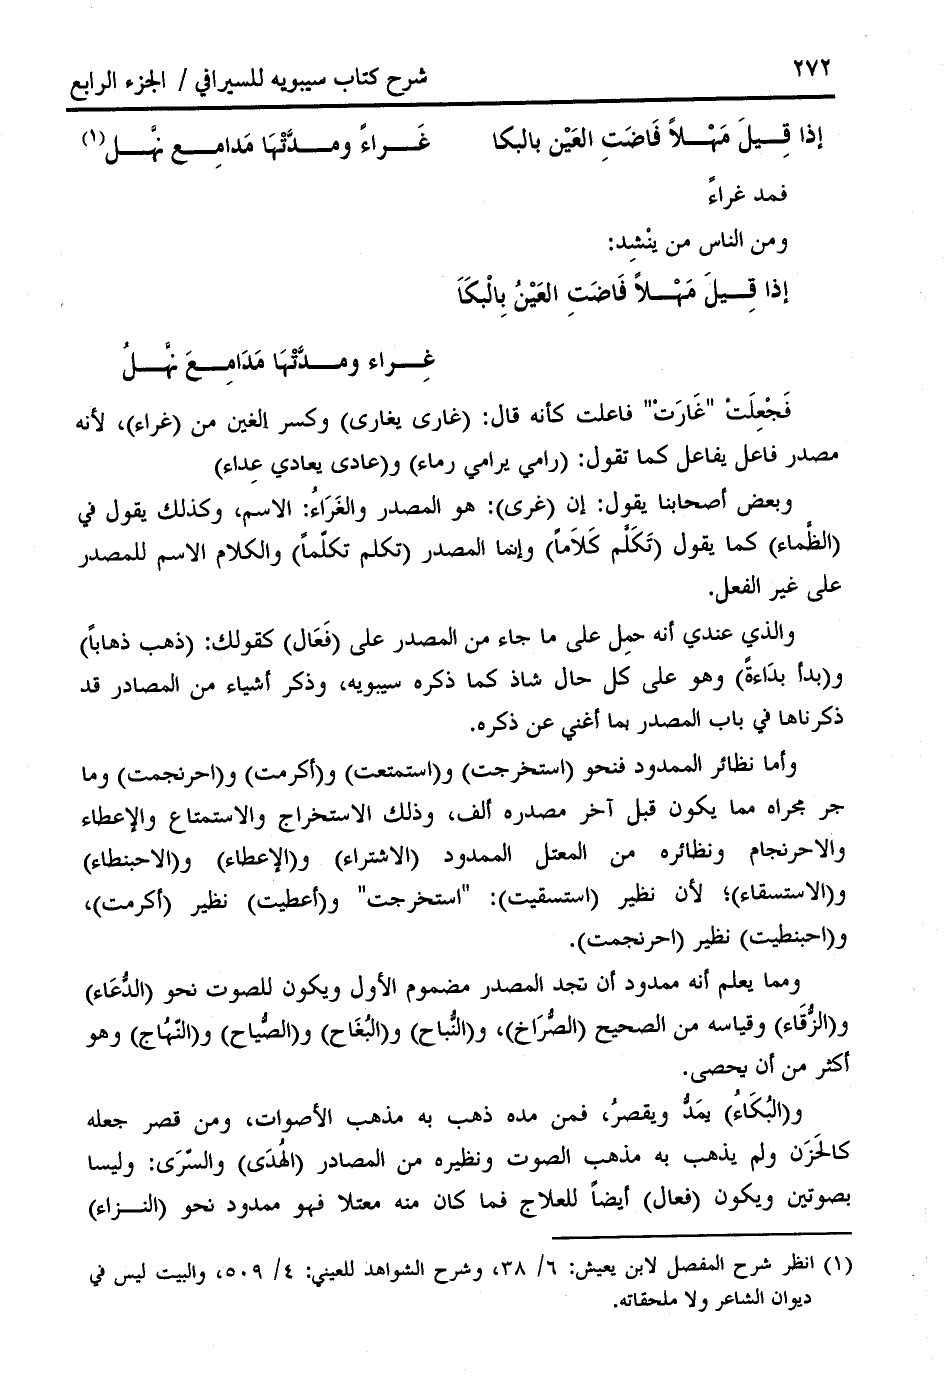 ٢٧٢
شرح كتاب سيبويه للسيرافي / الجزء الرابع
إذا قِــيلَ مَهْــلاً فَاضَتِ العَيْن بالبكا غَــراءً ومــدَّتْهَا مَدامِــع نهَّــل(١)
فمد غراءً
ومن الناس من ينْشِد:
إذا قِــيلَ مَهْــلاً فَاضَتِ العَيْنُ بِالْبكَا
غِــراء ومــدَّتْهَا مَدَامِــعَ نهَّــلُ
فَجْعِلَتْ "غَارَتْ" فاعلت كأنه قال: (غارى يغارى) وكسر الغين من (غراء)، لأنه
مصدر فاعل يفاعل كما تقول: (رامي يرامي رماء) و(عادى يعادي عِداء)
وبعض أصحابنا يقول: إن (غرى): هو المصدر والغَرَاءُ: الاسم، وكذلك يقول في
(الظَّماء) كما يقول (تَكَلَّم كَلَاماً) وإنما المصدر (تكلم تكلّماً) والكلام الاسم للمصدر
على غير الفعل.
والذي عندي أنه حمِل على ما جاء من المصدر على (فَعَال) كقولك: (ذهب ذهاباً)
و(بدأ بدَاءةً) وهو على كل حال شاذ كما ذكره سيبويه، وذكر أشياء من المصادر قد
ذكرناها في باب المصدر بما أغني عن ذكره.
وأما نظائر الممدود فنحو (استخرجت) و(استمتعت) و(أكرمت) و(احرنجمت) وما
جر مجراه مما يكون قبل آخر مصدره ألف، وذلك الاستخراج والاستمتاع والإعطاء
والاحرنجام ونظائره من المعتل الممدود (الاشتراء) و(الإعطاء) و(الاحبنطاء)
و(الاستسقاء)؛ لأن نظير (استسقيت): "استخرجت" و(أعطيت) نظير (أكرمت)،
و(احبنطيت) نظير (احرنجمت).
ومما يعلم أنه ممدود أن تجد المصدر مضموم الأول ويكون للصوت نحو (الدُّعَاء)
و(الزُّقَاء) وقياسه من الصحيح (الصُّرَاخ)، و(النُّباح) و(البُغَاح) و(الصُّياح) و(النّهَاج) وهو
أكثر من أن يحصى.
و(البُكَاءُ) يمَدُّ ويقصرُ، فمن مده ذهب به مذهب الأصوات، ومن قصر جعله
كالحَزَن ولم يذهب به مذهب الصوت ونظيره من المصادر (الهُدَى) والسّرَى: وليسا
بصوتين ويكون (فعال) أيضاً للعلاج فما كان منه معتلا فهو ممدود نحو (النــزاء)
(١) انظر شرح المفصل لابن يعيش: ٦/ ٣٨، وشرح الشواهد للعيني: ٤/ ٥٠٩، والبيت ليس في
ديوان الشاعر ولا ملحقاته.